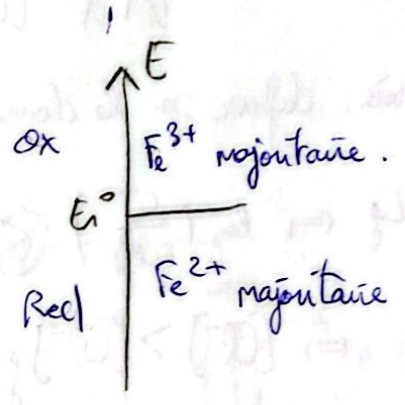 E
Ox Fe³⁺ majoritaire.
E₁°
Fe²⁺ majoritaire
Red